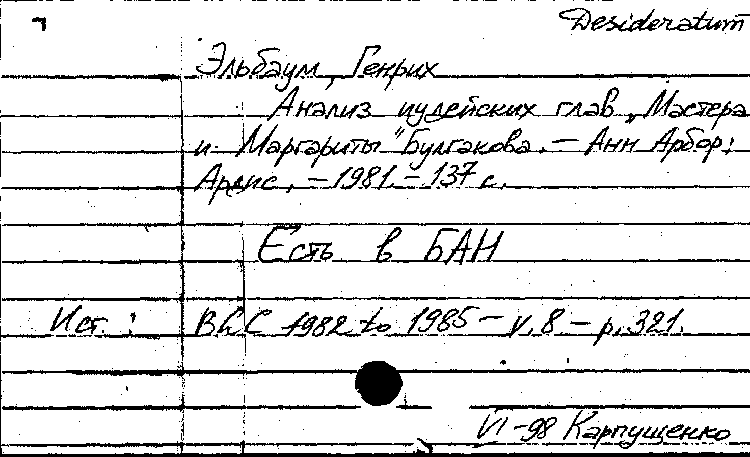 Desideratum
Эльбаум, Генрих
Анализ иудейских глав „Мастера
и Маргариты" Булгакова. — Анн Арбор:
Ардис, — 1981. — 137 с.
Есть в БАН
Ист.: BLC 1982 to 1985 — v. 8 — p. 321.
VI-98 Карпущенко